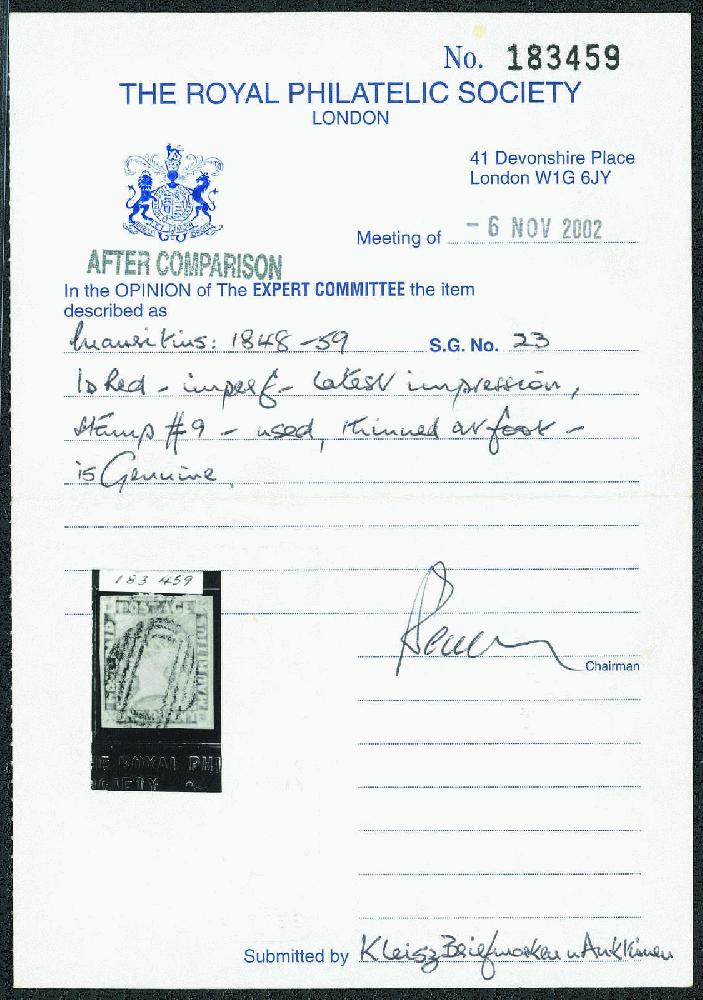 No. 183459
THE ROYAL PHILATELIC SOCIETY
LONDON
41 Devonshire Place
London W1G 6JY
Meeting of - 6 NOV 2002
AFTER COMPARISON
In the OPINION of The EXPERT COMMITTEE the item
described as
Mauritius: 1848-59 S.G. No. 23
1d Red - imperf - latest impression,
stamp #9 - used, thinned at foot -
is Genuine.
183 459
POSTAGE
MAURITIUS
E ROYAL PHI
CIETY
Chairman
Submitted by Kleisz Briefmarken u